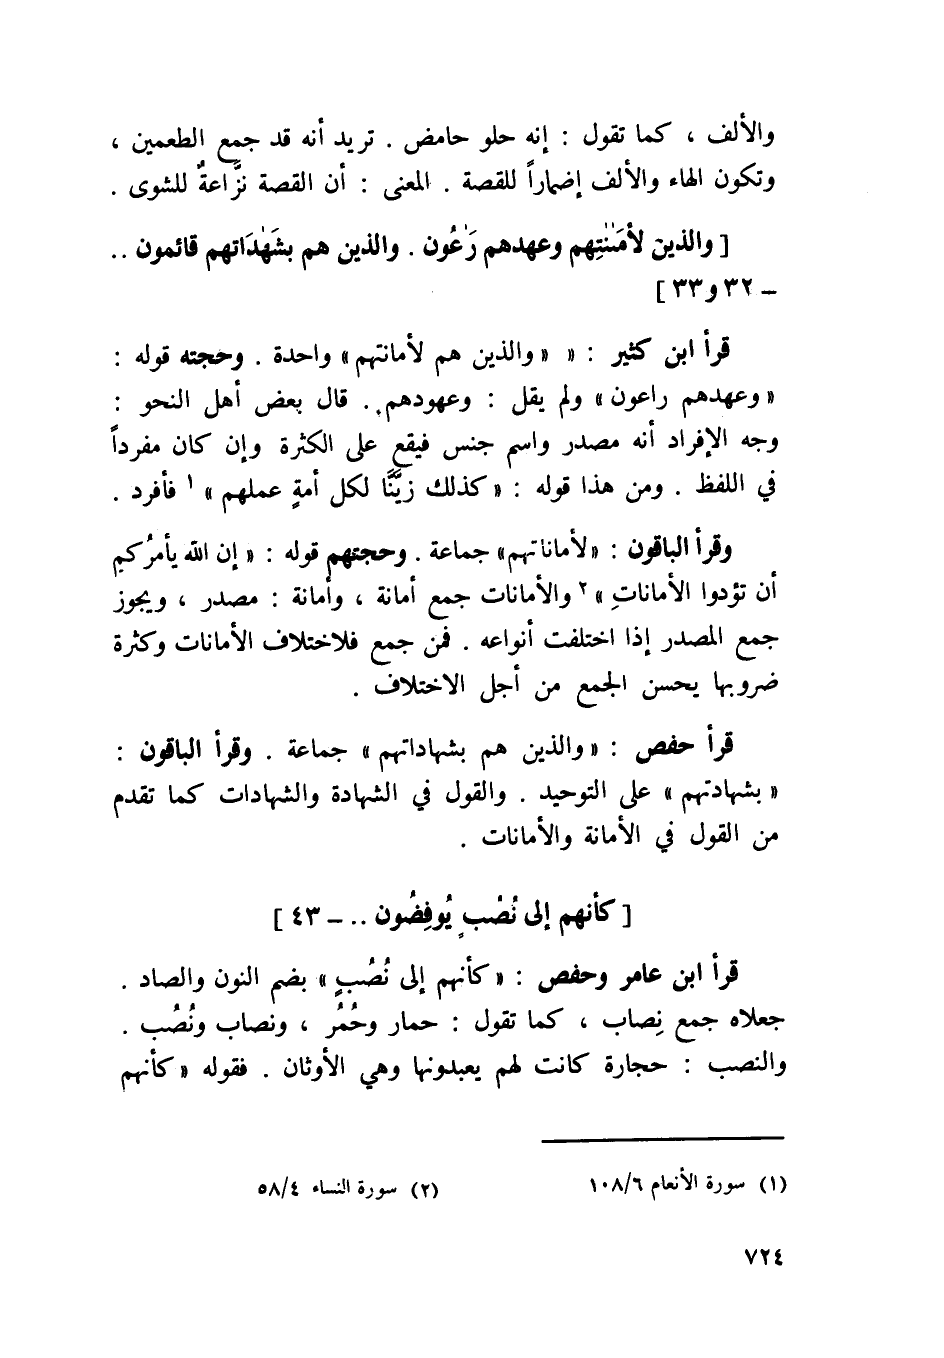 والألف ، كما تقول : إنه حلو حامض . تريد أنه قد جمع الطعمين ،
وتكون الهاء والألف إضماراً للقصة . المعنى : أن القصة نزَّاعةٌ للشوى .
[ والذين لأمَٰنَٰتِهِم وعهدهم رَٰعُون . والذين هم بشَهَٰدَاتهم قائمون ..
– ٣٢ و٣٣ ]
قرأ ابن كثير : « « والذين هم لأمانتهم» واحدة . وحجته قوله :
« وعهدهم راعون » ولم يقل : وعهودهم . قال بعض أهل النحو :
وجه الإفراد أنه مصدر واسم جنس فيقع على الكثرة وإن كان مفرداً
في اللفظ . ومن هذا قوله : « كذلك زيَّنَّا لكل أمةٍ عملهم » ١ فأفرد .
وقرأ الباقون : «لأماناتهم» جماعة . وحجتهم قوله : « إن الله يأمرُكم
أن تؤدوا الأماناتِ » ٢ والأمانات جمع أمانة ، وأمانة : مصدر ، ويجوز
جمع المصدر إذا اختلفت أنواعه . فمن جمع فلاختلاف الأمانات وكثرة
ضروبها يحسن الجمع من أجل الاختلاف .
قرأ حفص : « والذين هم بشهاداتهم » جماعة . وقرأ الباقون :
« بشهادتهم » على التوحيد . والقول في الشهادة والشهادات كما تقدم
من القول في الأمانة والأمانات .
[ كأنهم إلى نُصُبٍ يُوفِضُون .. – ٤٣ ]
قرأ ابن عامر وحفص : « كأنهم إلى نُصُبٍ » بضم النون والصاد .
جعلاه جمع نِصاب ، كما تقول : حمار وحُمُر ، ونصاب ونُصُب .
والنصب : حجارة كانت لهم يعبدونها وهي الأوثان . فقوله « كأنهم
(١) سورة الأنعام ١٠٨/٦
(٢) سورة النساء ٥٨/٤
٧٢٤